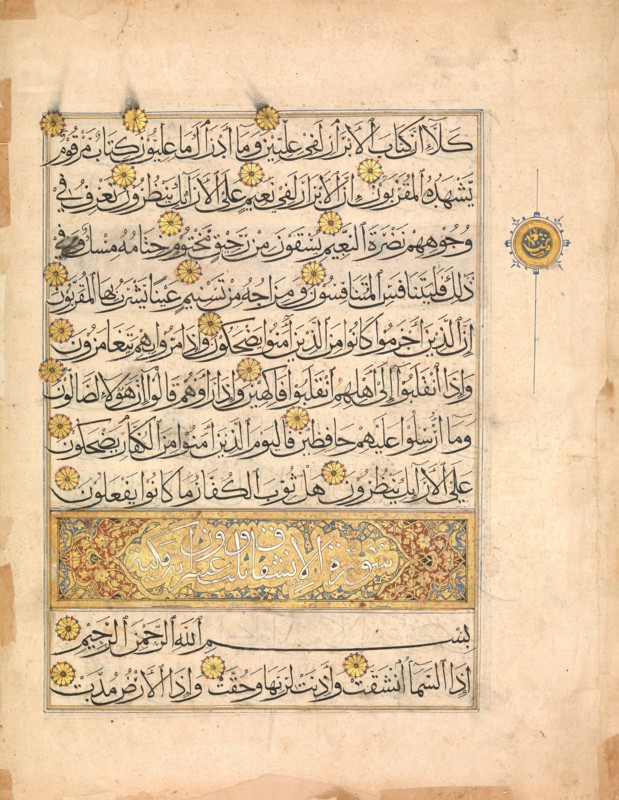 كلا إن كتاب الأبرار لفي عليين وما أدراك ما عليون كتاب مرقوم
يشهده المقربون إن الأبرار لفي نعيم على الأرائك ينظرون تعرف في
وجوههم نضرة النعيم يسقون من رحيق مختوم ختامه مسك وفي
ذلك فليتنافس المتنافسون ومزاجه من تسنيم عينا يشرب بها المقربون
إن الذين أجرموا كانوا من الذين آمنوا يضحكون وإذا مروا بهم يتغامزون
وإذا انقلبوا إلى أهلهم انقلبوا فاكهين وإذا رأوهم قالوا إن هؤلاء لضالون
وما أرسلوا عليهم حافظين فاليوم الذين آمنوا من الكفار يضحكون
على الأرائك ينظرون هل ثوب الكفار ما كانوا يفعلون
سورة الانشقاق وعشرون مكية
بسم الله الرحمن الرحيم
إذا السماء انشقت وأذنت لربها وحقت وإذا الأرض مدت